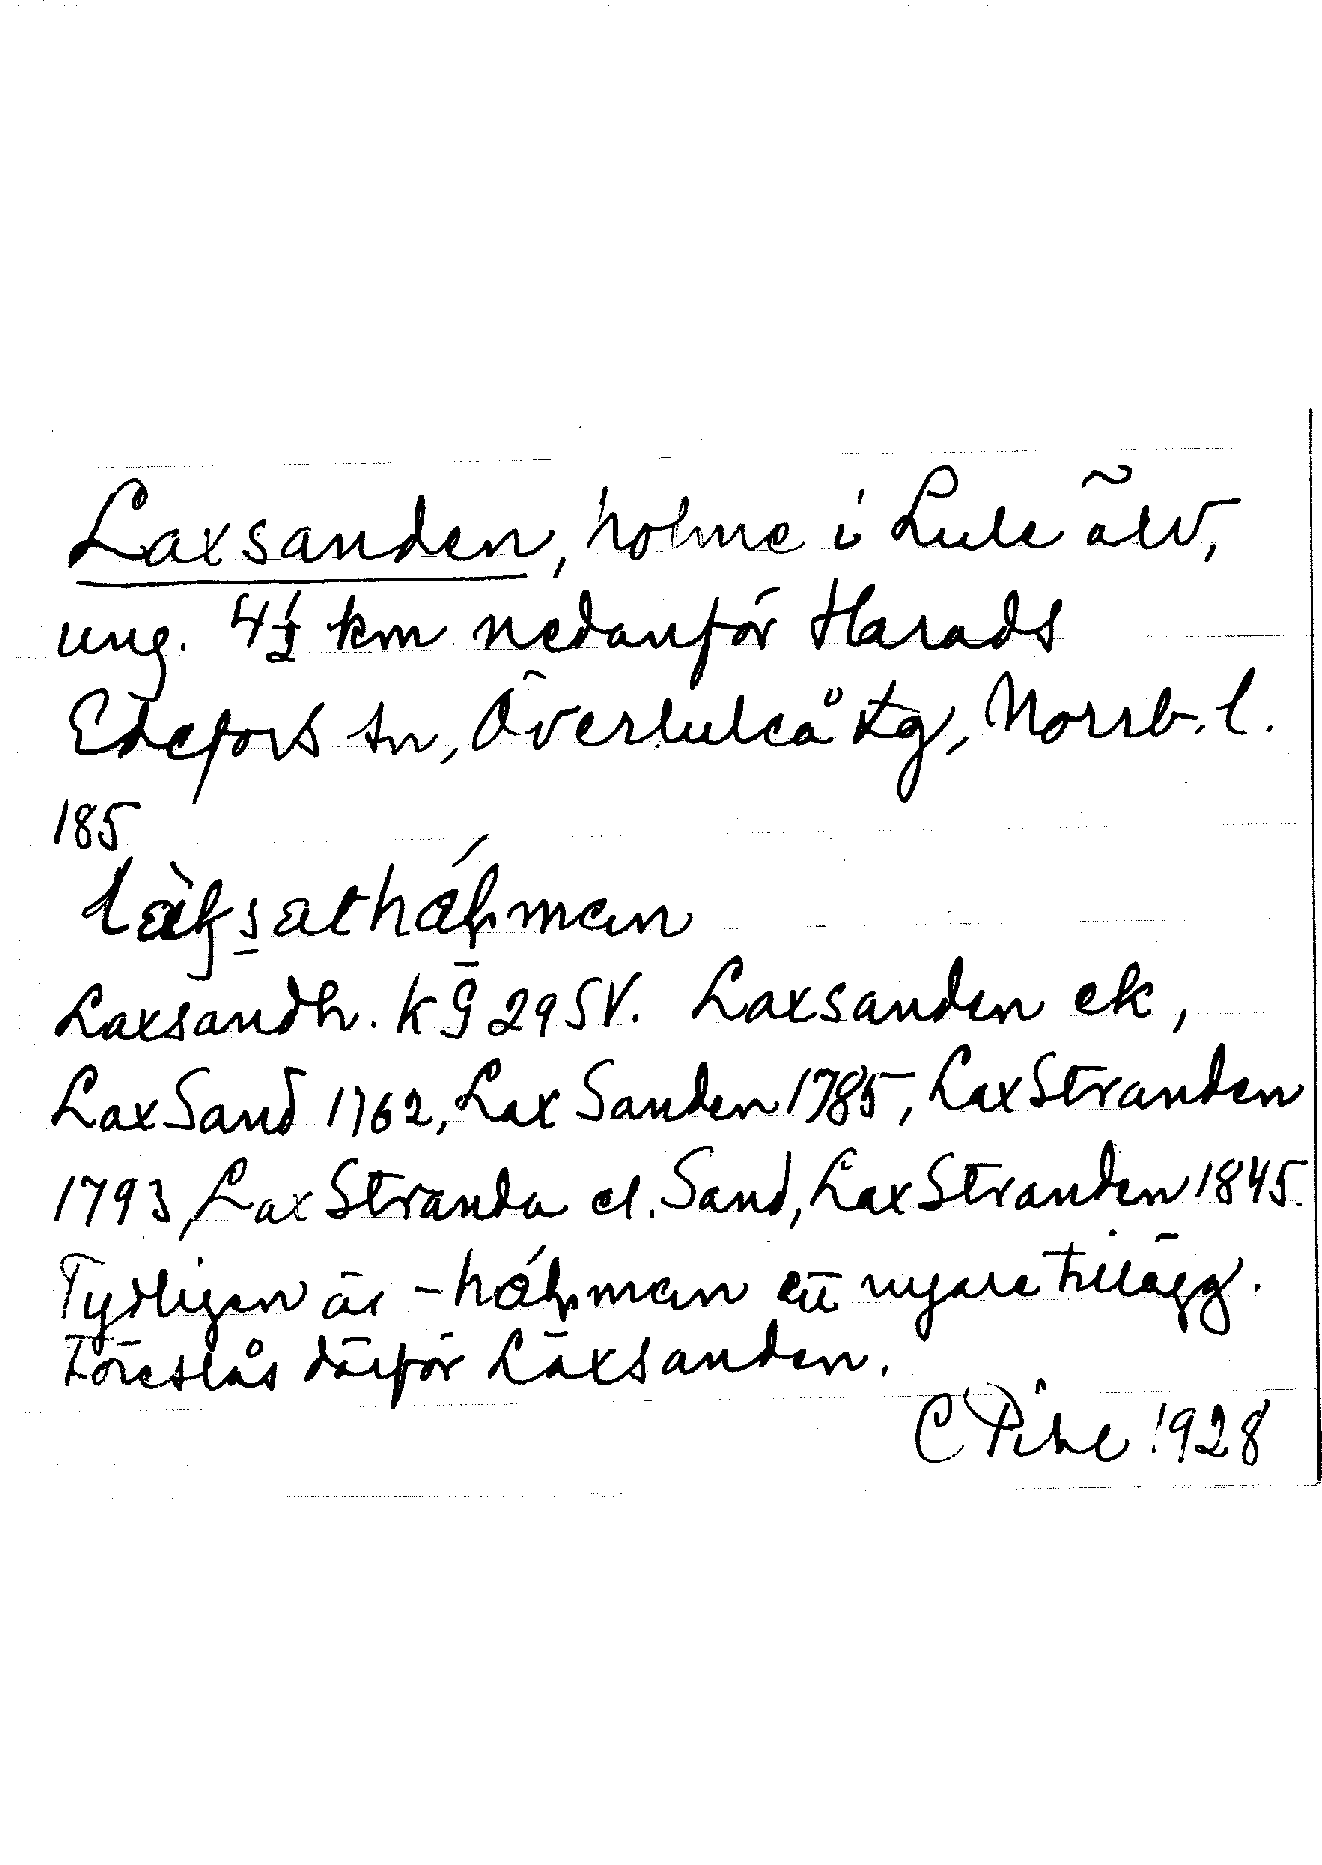 Laxsanden, holme i Lule älv,
ung. 4½ km nedanför Harads
Edefors sn, Överluleå tg, Norrb. l.
185
Laxsandh. k G 29 SV. Laxsanden ek,
Lax Sand 1762, Lax Sanden 1785, Lax Stranden
1793, Lax Stranda el. Sand, Lax Stranden 1845.
Tydligen är ett nyare tillägg.
Föreslås därför Laxsanden.
C Pihl 1928